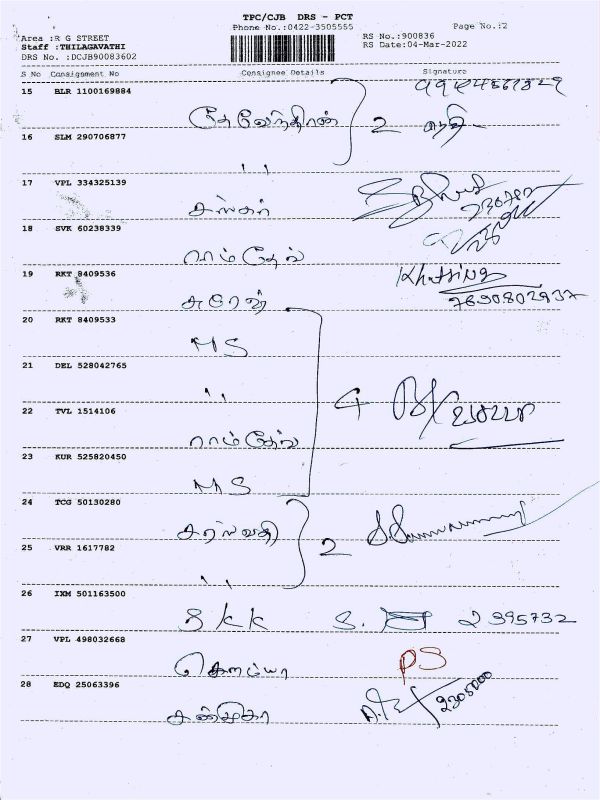 TPC/CJB DRS - PCT
Phone No.:0422-3505555
Page No.:2
Area :R G STREET
Staff :THILAGAVATHI
DRS No. :DCJB90083602
RS No.:900836
RS Date:04-Mar-2022
S No Consignment No Consignee Details Signature
15 BLR 1100169884
தேவேந்திரன் 2
16 SLM 290706877
" "
17 VPL 334325139
சங்கர்
18 SVK 60238339
ராம்தேவ்
19 RKT 8409536
Khetsing
சுரேஷ் 7690802937
20 RKT 8409533
MS
21 DEL 528042765
" 4
22 TVL 1514106
ராம்தேவ்
23 KUR 525820450
MS
24 TCG 50130280
சரஸ்வதி 2
25 VRR 1617782
" "
26 IXM 501163500
SKK S. 2395732
27 VPL 498032668
PS
28 EDQ 25063396
சண்முகா